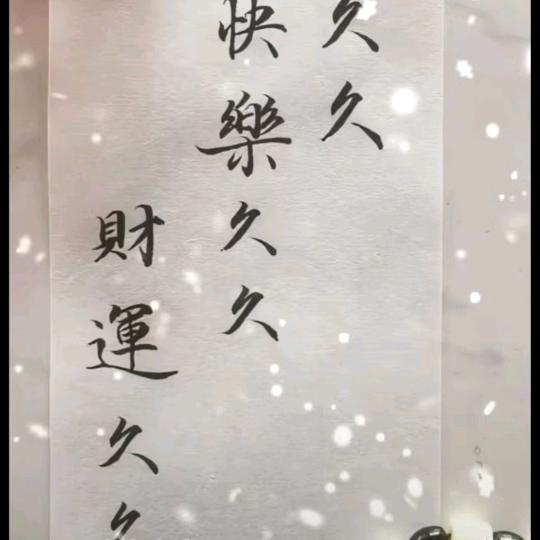 久久
快樂久久
財運久久